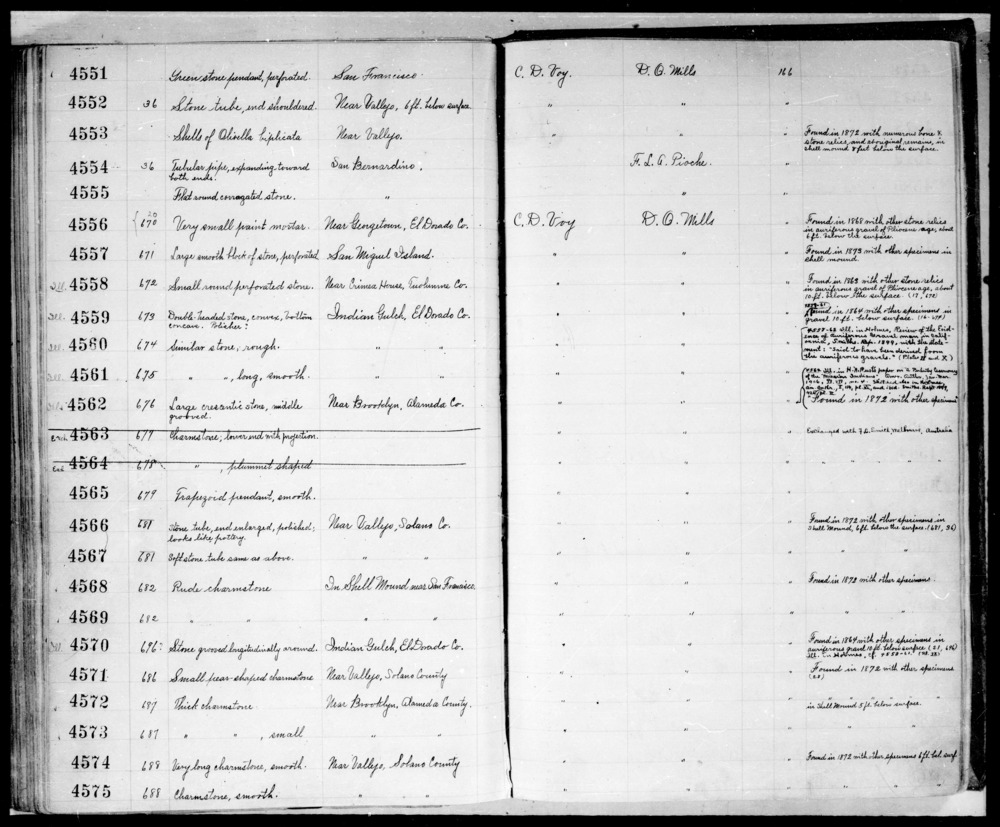 4551 Green stone pendant, perforated. San Francisco. C. D. Voy. D. O. Mills 166
4552 36 Stone tube, end shouldered. Near Vallejo, 6 ft. below surface. " " "
4553 Shells of Olivella biplicata Near Vallejo. " " " Found in 1872 with numerous bone &
stone relics, and aboriginal remains, in
shell mound 8 feet below the surface.
4554 36 Tubular pipe, expanding toward San Bernardino. F. L. A. Pioche. "
both ends.
4555 Flat round corrugated stone. " " "
4556 20
670 Very small paint mortar. Near Georgetown, El Dorado Co. C. D. Voy D. O. Mills " Found in 1868 with other stone relics
in auriferous gravel of Pliocene age, about
6 ft. below the surface.
4557 671 Large smooth block of stone, perforated San Miguel Island. " " " Found in 1873 with other specimens in
shell mound.
Ill. 4558 672 Small round perforated stone. Near Crimea House, Tuolumne Co. " " " Found in 1863 with other stone relics
in auriferous gravel of Pliocene age, about
10 ft. below the surface. (17, 672)
Ill. 4559 673 Double-headed stone, convex, bottom Indian Gulch, El Dorado Co. " " " Found in 1864 with other specimens in
concave. Polisher? gravel 10 ft. below surface. (16-674)
Ill. 4560 674 Similar stone, rough. " " " " 4558-63 Ill. in Holmes, Review of the Evid-
ence of Auriferous Gravel man in Calif-
ornia, Smiths. Rep. 1899, with the state-
ment: "Said to have been derived from
the auriferous gravels."
Ill. 4561 675 " " , long, smooth. " " " "
Ill. 4562 676 Large crescentic stone, middle Near Brooklyn, Alameda Co. " " " Found in 1872 with other specimens
grooved.
Exch 4563 677 Charmstone; lower end with projection. " " Exchanged with Melbourne, Australia
Exch 4564 678 " , plummet shaped " " " " " "
4565 679 Trapezoid pendant, smooth. " " "
4566 681 Stone tube, end enlarged, polished; Near Vallejo, Solano Co. " " " Found in 1872 with other specimens in
looks like pottery. Shell Mound, 6 ft. below the surface. (681, 36)
4567 681 Soft stone tube same as above. " " " " " " "
4568 682 Rude charmstone In Shell Mound near San Francisco. " " " Found in 1872 with other specimens.
4569 682 " " " " " " "
Ill. 4570 696 Stone grooved longitudinally around. Indian Gulch, El Dorado Co. " " " Found in 1864 with other specimens in
auriferous gravel 10 ft. below surface (21, 696)
Ill. in Holmes, cf. 4558-61.
4571 686 Small pear-shaped charmstone Near Vallejo, Solano County " " " Found in 1872 with other specimens
(28)
4572 687 Thick charmstone Near Brooklyn, Alameda County. " " " " " " " "
in Shell Mound 5 ft. below surface.
4573 687 " " , small " " " " " " "
4574 688 Very long charmstone, smooth. Near Vallejo, Solano County " " " Found in 1872 with other specimens 6 ft. bel. surf.
4575 688 Charmstone, smooth. " " " " " " " "